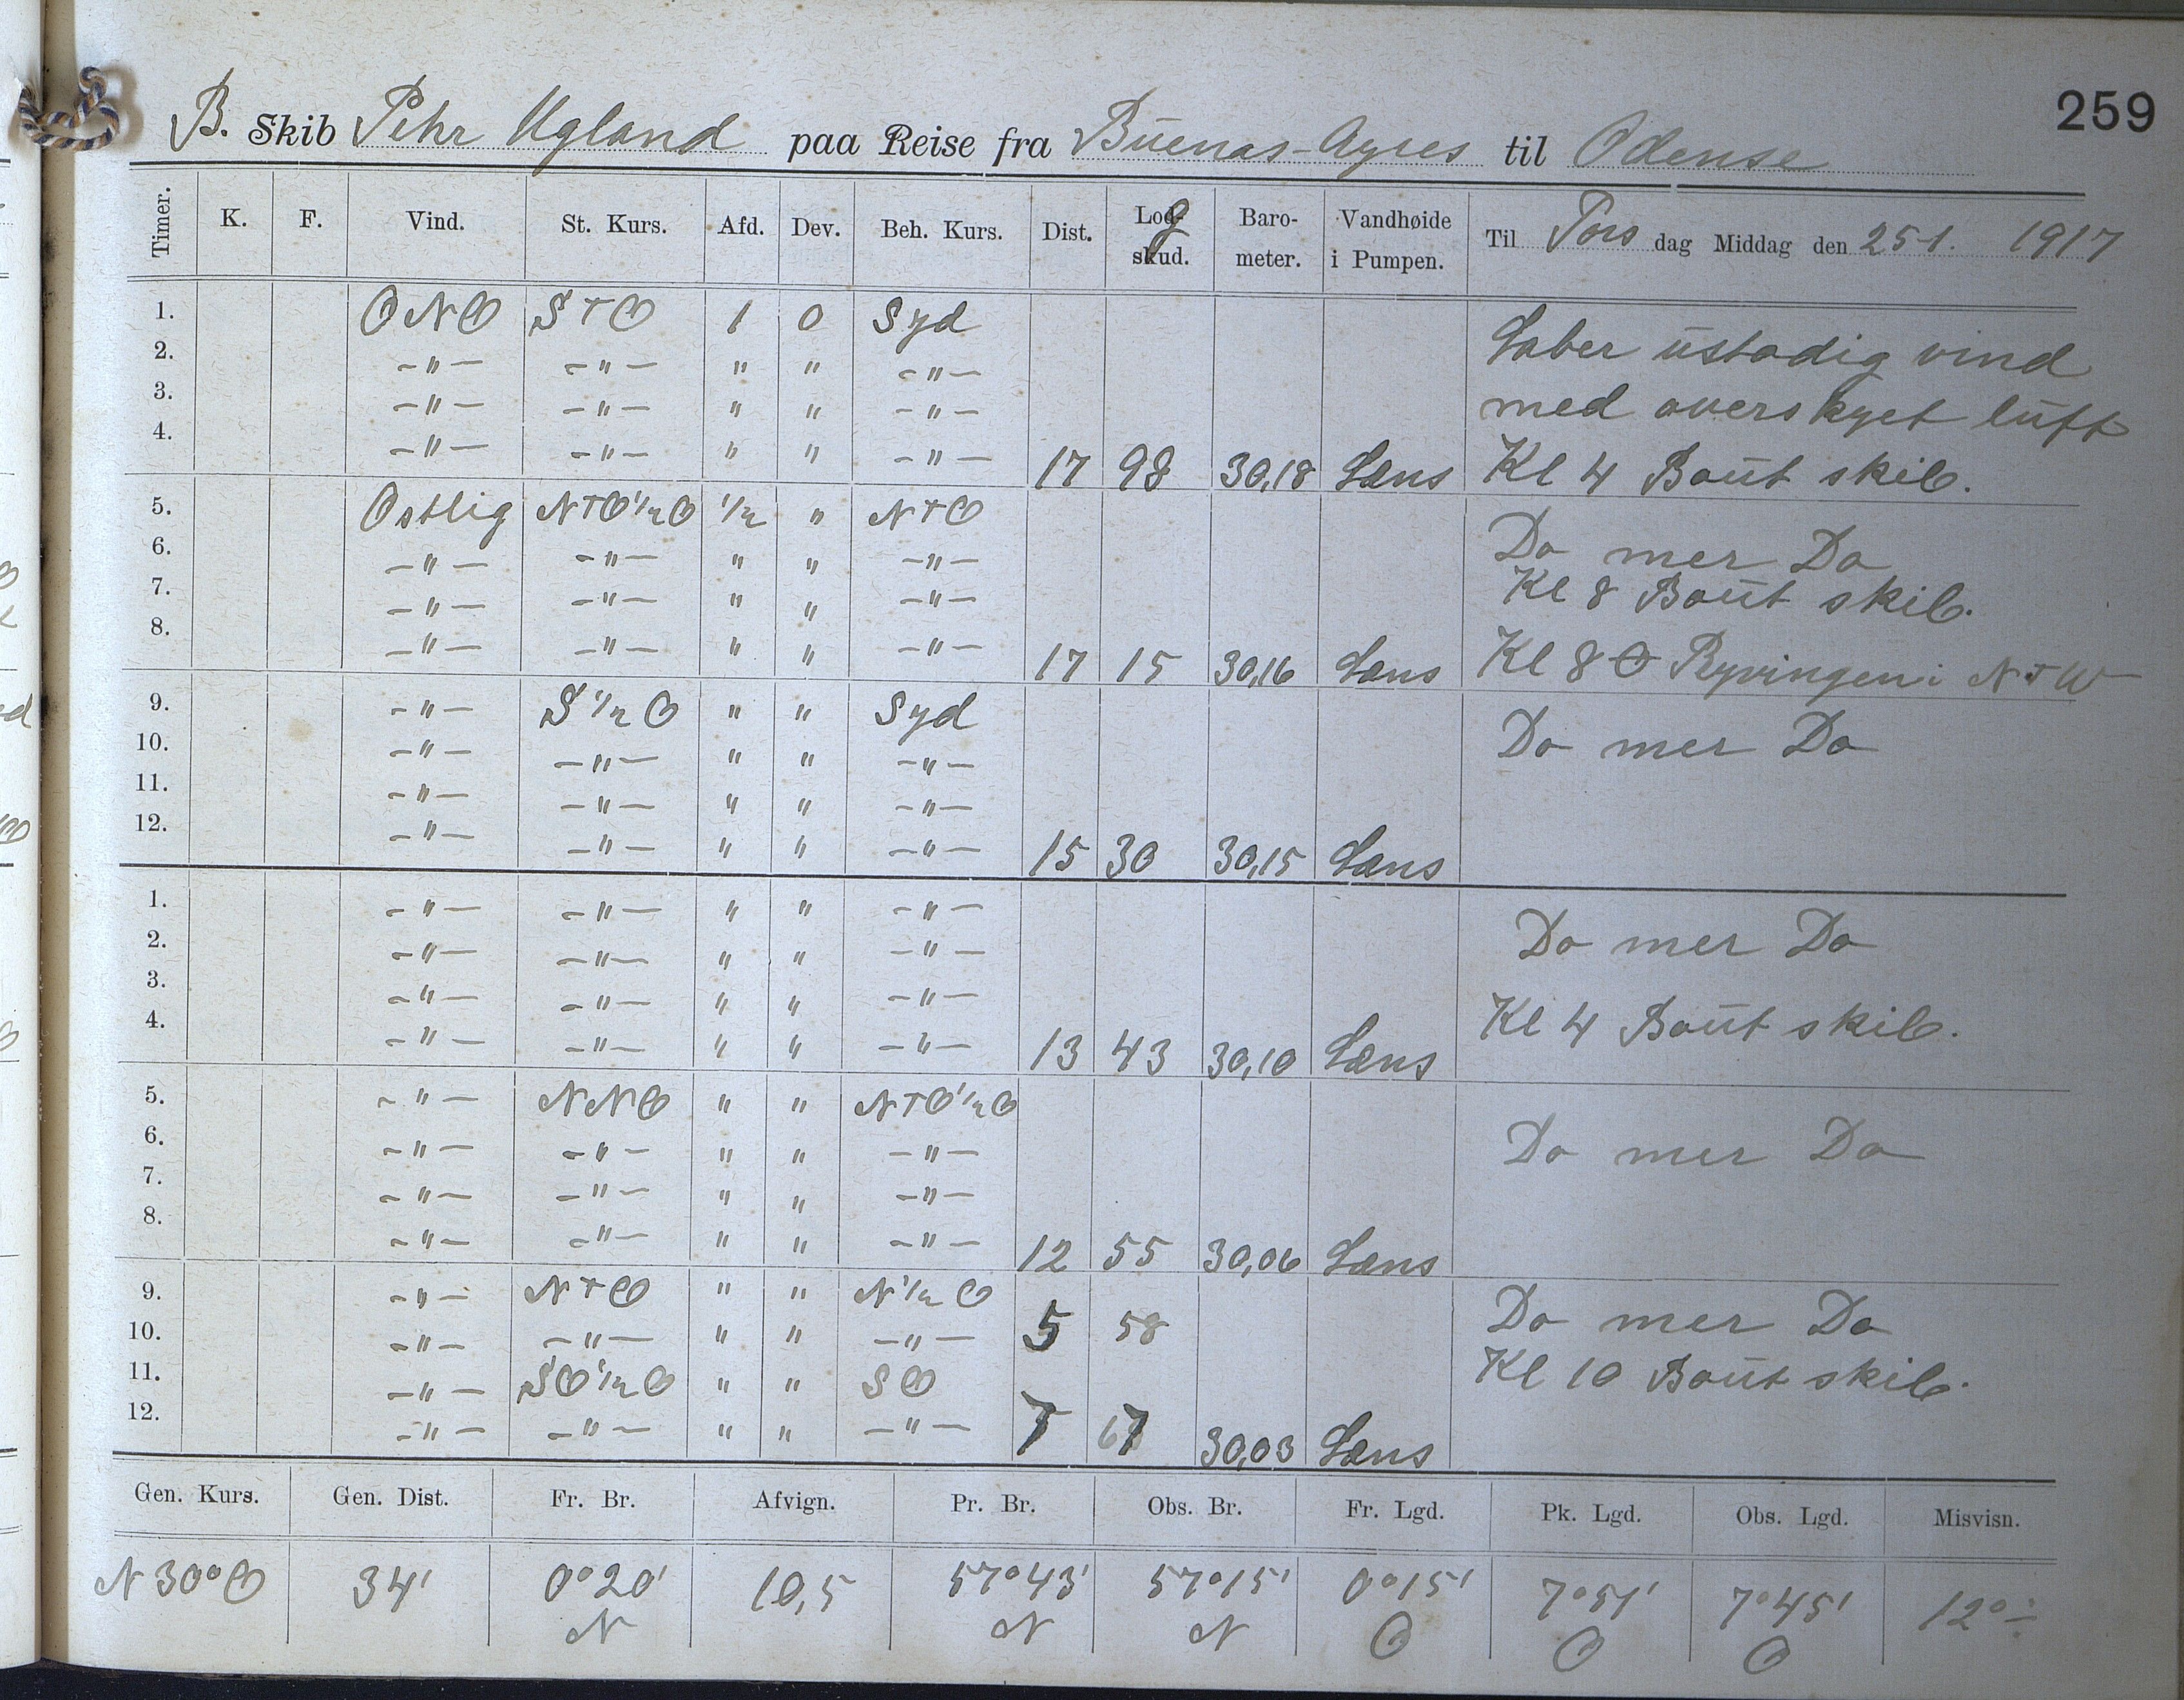 259
B. Skib Pehr Ugland paa Reise fra Buenas-Ayres til Odense
Timer. K. F. Vind. St. Kurs. Afd. Dev. Beh. Kurs. Dist. Logskud. Barometer. Vandhøide i Pumpen. Til Tors dag Middag den 25-1. 1917
1. ONO S t O 1 0 Syd
2. -"- -"- " " -"- Laber ustadig vind
3. -"- -"- " " -"- med overskyet luft
4. -"- -"- " " -"- 17 98 30,18 Læns Kl 4 Baut skib.
5. Ostlig N t O 1/2 O 1/2 " N t O
6. -"- -"- " " -"- Do mer Do
7. -"- -"- " " -"- Kl 8 Baut skib.
8. -"- -"- " " -"- 17 15 30,16 Læns Kl 8 O Ryvingen i N t W
9. -"- S 1/2 O " " Syd
10. -"- -"- " " -"- Do mer Do
11. -"- -"- " " -"-
12. -"- -"- " " -"- 15 30 30,15 Læns
1. -"- -"- " " -"-
2. -"- -"- " " -"- Do mer Do
3. -"- -"- " " -"-
4. -"- -"- " " -"- 13 43 30,10 Læns Kl 4 Baut skib.
5. -"- NNO " " N t O 1/2 O
6. -"- -"- " " -"- Do mer Do
7. -"- -"- " " -"-
8. -"- -"- " " -"- 12 55 30,06 Læns
9. -"- N t O " " N 1/2 O Do mer Do
10. -"- -"- " " -"- 5 58
11. -"- SO 1/2 O " " SO Kl 10 Baut skib.
12. -"- -"- " " -"- 7 67 30,03 Læns
Gen. Kurs. Gen. Dist. Fr. Br. Afvign. Pr. Br. Obs. Br. Fr. Lgd. Pk. Lgd. Obs. Lgd. Misvisn.
N 30° O 34' 0°20' N 10,5 57°43' N 57°15' N 0°15' O 7°51' O 7°45' O 12° ÷